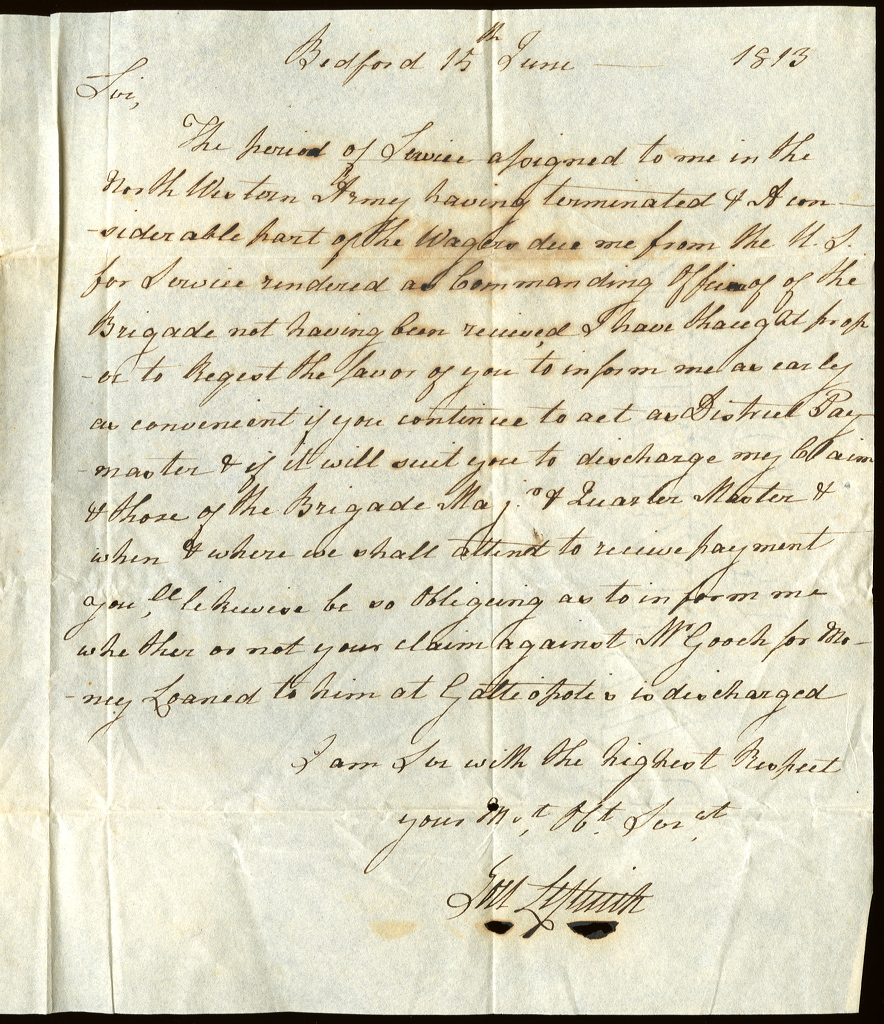 Bedford 15th June — 1813
Sir,
The period of Service assigned to me in the
North Western Army having terminated & A con-
-siderable part of the Wagers due me from the U. S.
for Service rendered as Commanding Officer of the
Brigade not having been received I have thaught prop
-er to Reqest the favor of you to inform me as early
as convenient if you continue to act as District Pay
-master & if it will suit you to discharge my Claim
& those of the Brigade Maj.r & Quarter Master &
when & where we shall attend to receive payment
you,ll likewise be so Obligeing as to inform me
whether or not your claim against Mr Gooch for Mo-
-ney Loaned to him at Galliopolis is discharged
I am Sir with the highest Respect
your Mo,t Obt. Serv,t
Joel Leftwich